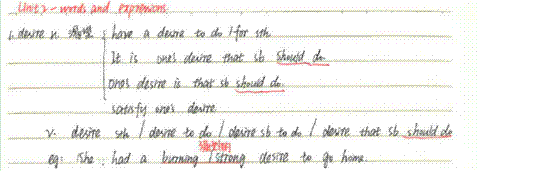 Unit 2 - words and expressions
1. desire n. 渴望 { have a desire to do / for sth
It is one's desire that sb should do.
one's desire is that sb should do.
satisfy one's desire
v. desire sth / desire to do / desire sb to do / desire that sb should do
eg: She had a burning / strong desire to go home.